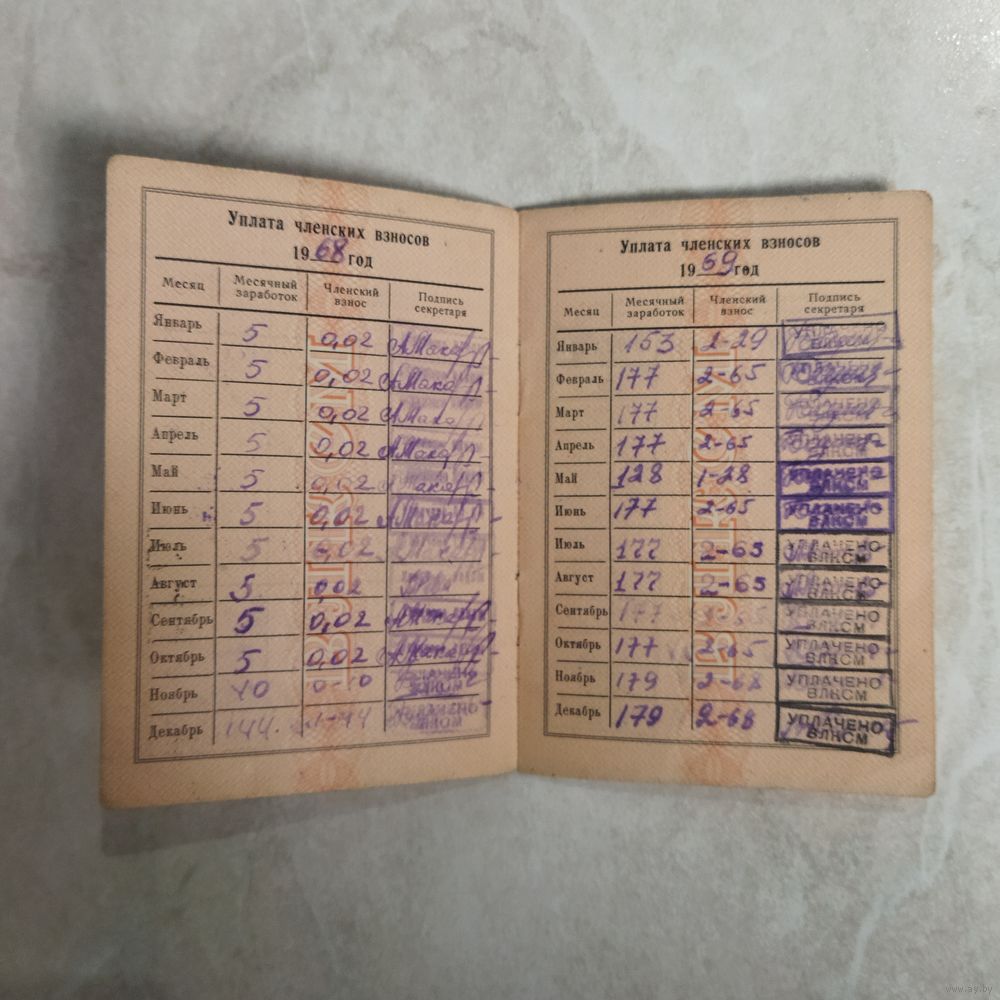 Уплата членских взносов
1968 год
Месяц Месячный заработок Членский взнос Подпись секретаря
Январь 5 0,02
Февраль 5 0,02
Март 5 0,02
Апрель 5 0,02
Май 5 0,02
Июнь 5 0,02
Июль 5 0,02
Август 5 002
Сентябрь 5 0,02
Октябрь 5 0,02
Ноябрь 0-10 УПЛАЧЕНО ВЛКСМ
Декабрь 144. 1-44 УПЛАЧЕНО ВЛКСМ
Уплата членских взносов
1969 год
Месяц Месячный заработок Членский взнос Подпись секретаря
Январь 153
Февраль 177 2-65
Март 177 2-65
Апрель 177 2-65 УПЛАЧЕНО ВЛКСМ
Май 128 1-28 УПЛАЧЕНО ВЛКСМ
Июнь 177 2-65 УПЛАЧЕНО ВЛКСМ
Июль 177 2-65 УПЛАЧЕНО ВЛКСМ
Август 177 2-65 УПЛАЧЕНО ВЛКСМ
Сентябрь 177 2-65 УПЛАЧЕНО ВЛКСМ
Октябрь 177 2-65 УПЛАЧЕНО ВЛКСМ
Ноябрь 179 2-68 УПЛАЧЕНО ВЛКСМ
Декабрь 179 2-68 УПЛАЧЕНО ВЛКСМ
ВЛКСМ
ВЛКСМ
www.ay.by